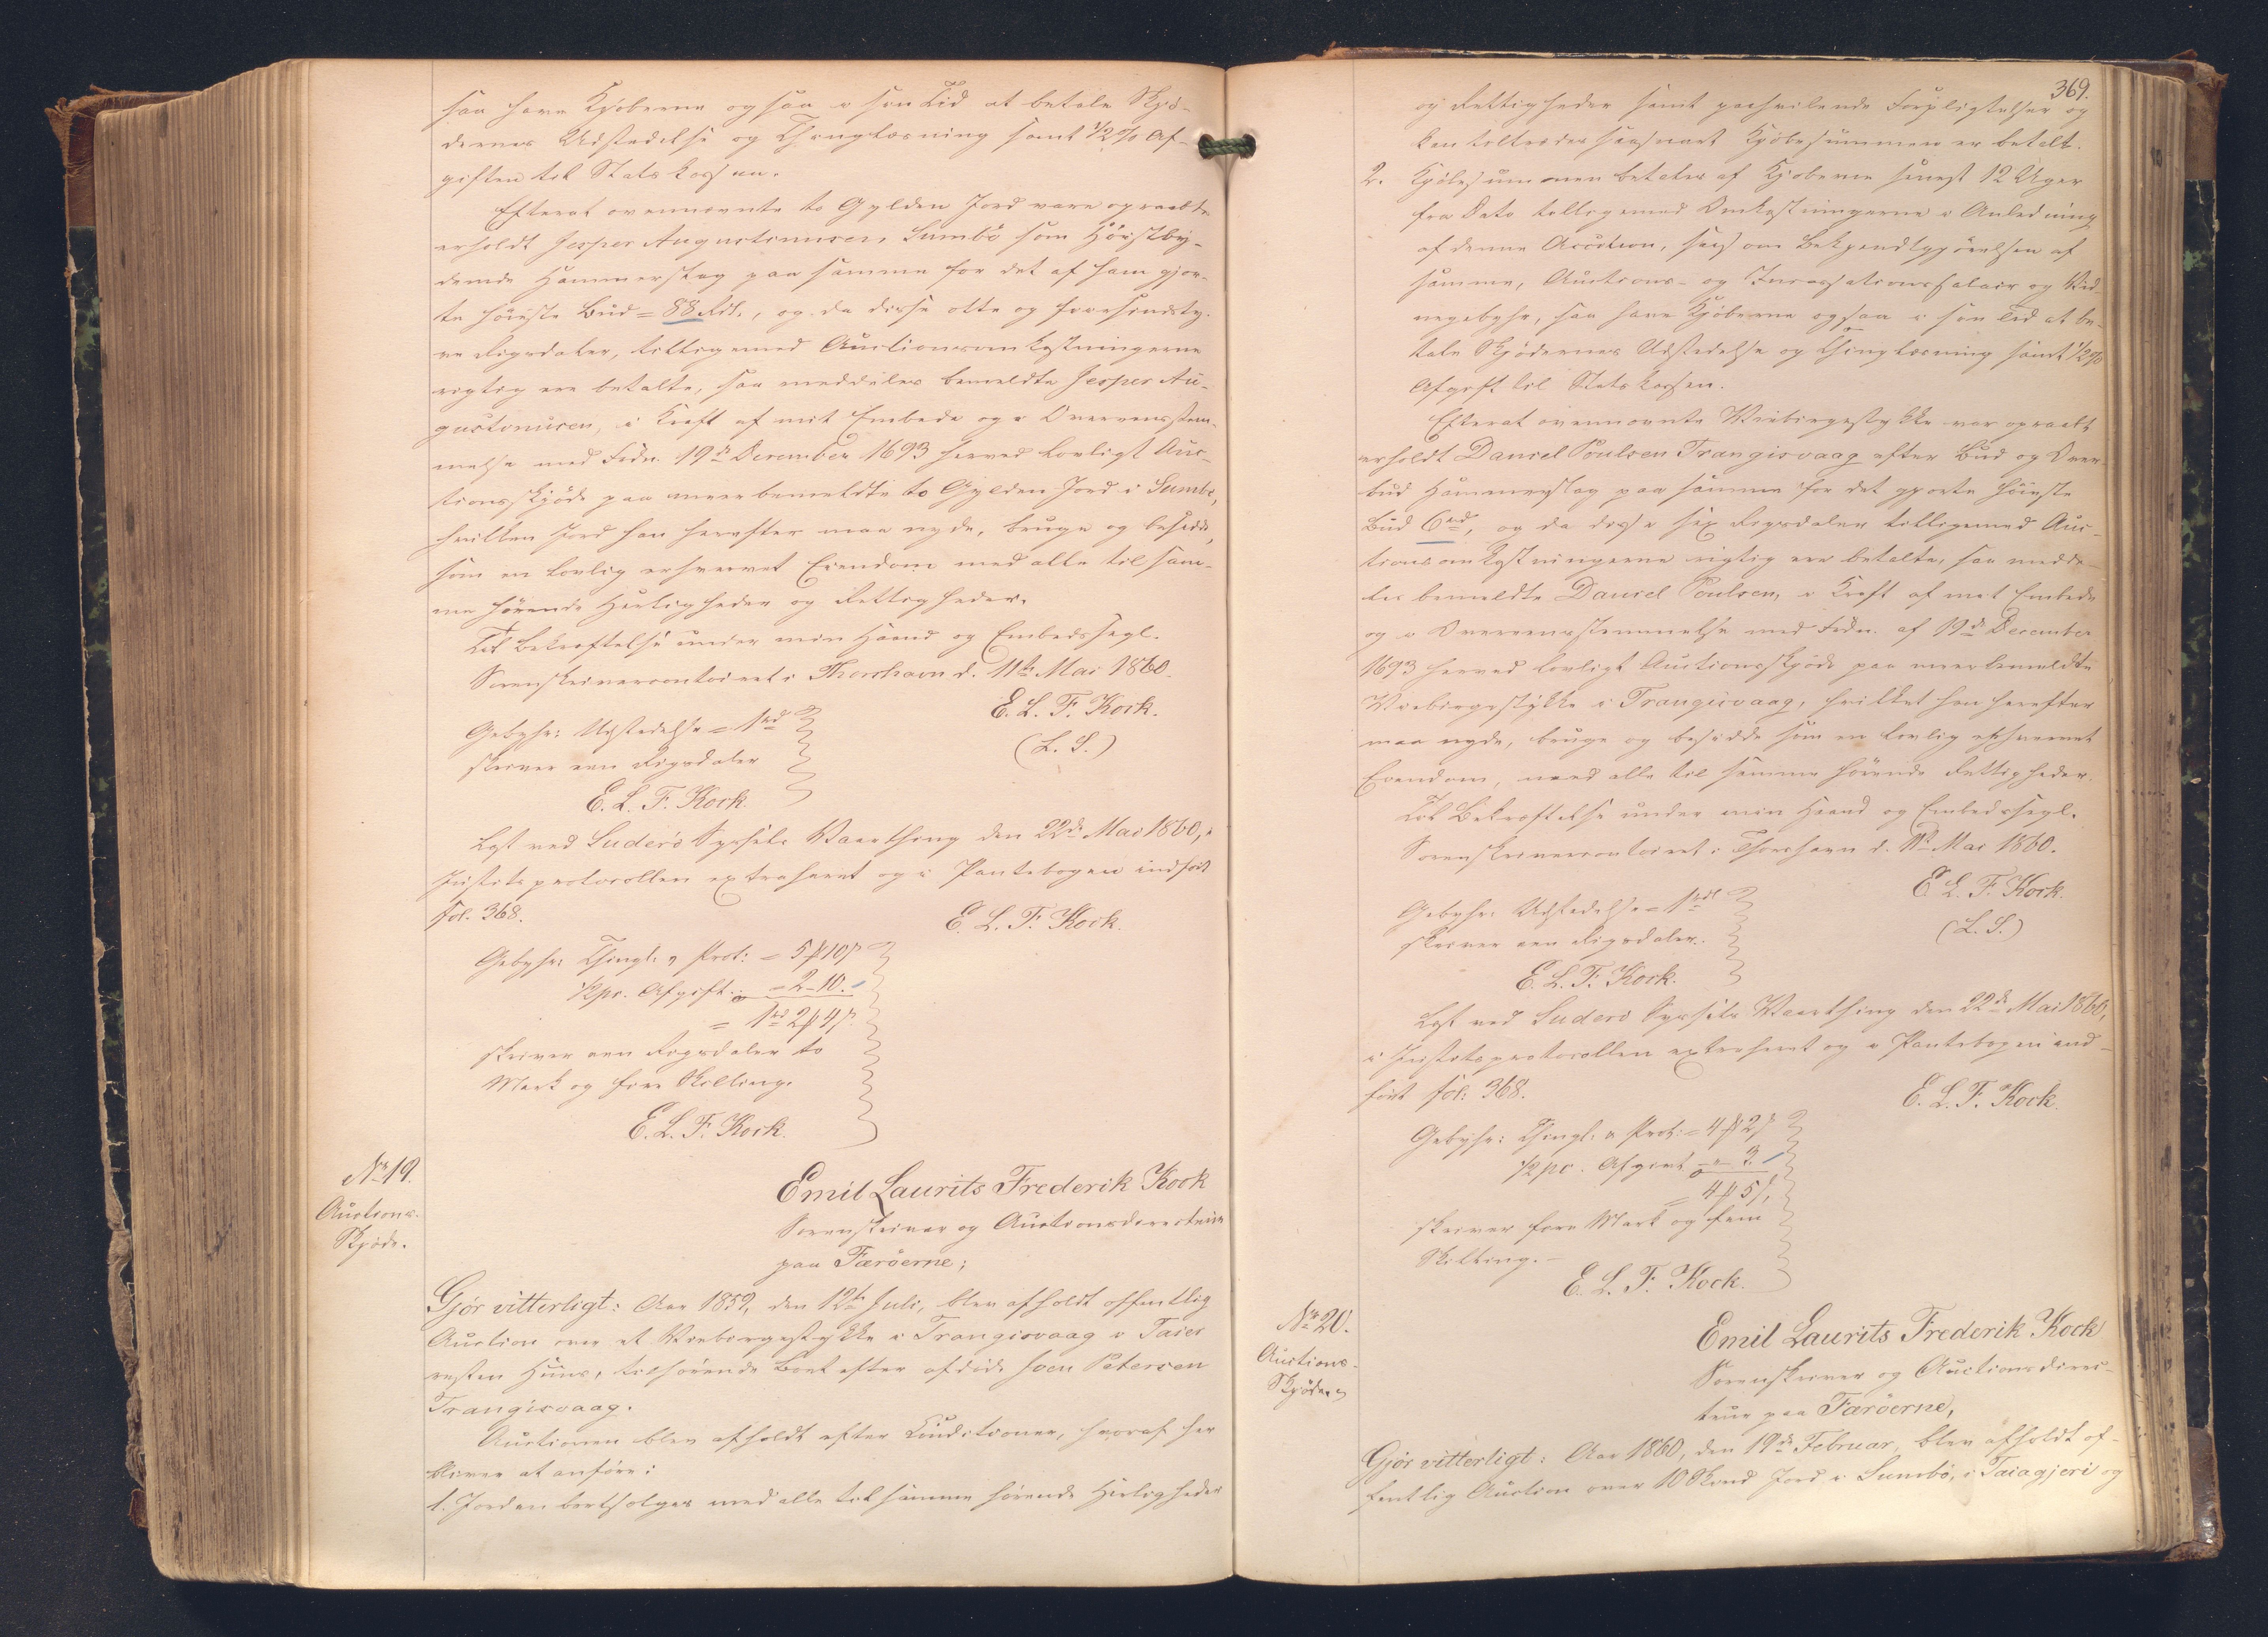 saa have Kjöberne ogsaa i sin Tid at betale Skjö-
dernes Udstedelse og Thinglæsning samt 1/2 % Af-
giften til Statskassen.
Efterat ovennævnte to Gylden Jord vare opraabte
erholdt Jesper Augustinusen Sumbö som Höistby-
dende Hammerslag paa samme for det af ham gjor-
te höieste Bud = 88 Rdl., og da disse otte og fiirsindsty-
ve Rigsdaler, tilligemed Auctionsomkostningerne
rigtig ere betalte, saa meddeles bemeldte Jesper Au-
gustinusen, i Kraft af mit Embede og i Overensstem-
melse med Frdn. 19de December 1693 herved lovligt Auc-
tionsskjöde paa meerbemeldte to Gylden Jord i Sumbö,
hvilken Jord han herefter maa nyde, bruge og besidde,
som en lovlig erhvervet Eiendom med alle til sam-
me hörende Herligheder og Rettigheder.
Til Bekræftelse under min Haand og Embedssegl.
Sorenskrivercontoiret i Thorshavn d. 11te Mai 1860.
E. L. F. Kock.
(L. S.)
Gebyhr: Udstedelse = 1rd
skriver een Rigsdaler
E. L. F. Kock.
Læst ved Suderö Syssels Vaarthing den 22de Mai 1860, i
Justitsprotocollen extraheret og i Pantebogen indfört
fol. 368.
E. L. F. Kock.
Gebyhr: Thingl. & Prot: = 5 ℳ 10 ß
1/2 pc. Afgift. = 2 - 10.
= 1rd 2 ℳ 4 ß.
skriver een Rigsdaler to
Mark og fire Skilling.
E. L. F. Kock.
No 19.
Auctions-
Skjöde.
Emil Laurits Frederik Kock
Sorenskriver og Auctionsdirecteur
paa Færöerne;
Gjör vitterligt: Aar 1859, den 12te Juli, blev afholdt offentlig
Auction over et Trangisvaag i
Huus, tilhörende Boet efter afdöde Joen Petersen
Trangisvaag.
Auctionen blev afholdt efter Conditioner, hvoraf her
bliver at anföre:
1. Jorden bortsælges med alle til samme hörende Herligheder
369.
og Rettigheder samt paahvilende Forpligtelser og
kan tiltrædes saasnart Kjöbesummen er betalt.
2. Kjöbesummen betales af Kjöberne senest 12 Uger
fra Dato tilligemed Omkostningerne i Anledning
af denne Auction, saasom Bekjendtgjörelsen af
samme, Auctions- og Incassationssalair og Vid-
negebyhr, saa have Kjöberne ogsaa i sin Tid at be-
tale Skjödernes Udstedelse og Thinglæsning samt 1/2 %
Afgift til Statskassen.
Efterat ovennævnte var opraabt
erholdt Daniel Poulsen Trangisvaag efter Bud og Over-
bud Hammerslag paa samme for det gjorte höieste
Bud 6rd, og da disse sex Rigsdaler tilligemed Auc-
tionsomkostningerne rigtig ere betalte, saa medde-
les bemeldte Daniel Poulsen, i Kraft af mit Embede
og i Overensstemmelse med Frdn. af 19de December
1693 herved lovligt Auctionsskjöde paa meerbemeldte
i Trangisvaag, hvilket han herefter
maa nyde, bruge og besidde som en lovlig erhvervet
Eiendom, med alle til samme hörende Rettigheder.
Til Bekræftelse under min Haand og Embedssegl.
Sorenskrivercontoiret i Thorshavn d. 11te Mai 1860.
E. L. F. Kock.
(L. S.)
Gebyhr: Udstedelse = 1rdl
skriver een Rigsdaler.
E. L. F. Kock.
Læst ved Suderö Syssels Vaarthing den 22de Mai 1860,
i Justitsprotocollen extraheret og i Pantebogen ind-
fört fol: 368.
E. L. F. Kock.
Gebyhr: Thingl. & Prot: = 4 ℳ 2 ß
1/2 pc. Afgivt = " - 3.
= 4 ℳ 5 ß,
skriver fire Mark og fem
Skilling. -
E. L. F. Kock.
No 20.
Auctions-
Skjöde.
Emil Laurits Frederik Kock
Sorenskriver og Auctionsdirec-
teur paa Færöerne,
Gjör vitterligt: Aar 1860, den 19de Februar, blev afholdt of-
fentlig Auction over 10 Skind Jord i Sumbö, i Taiagjeri og